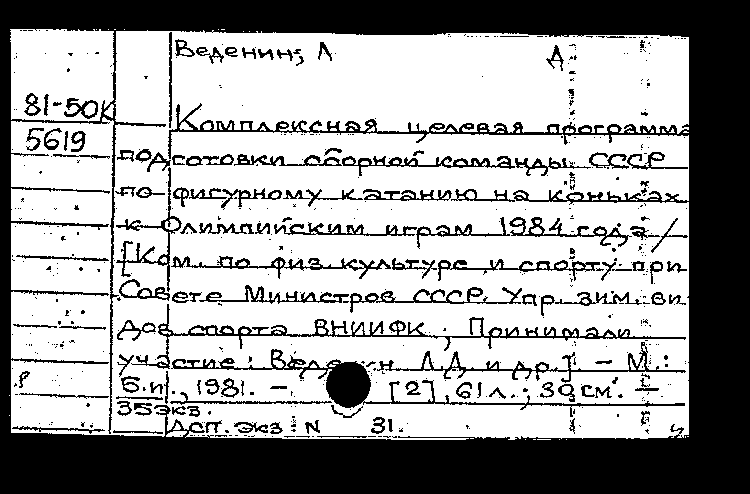 Веденин, Л Д
81-50К
5619
Комплексная целевая программа
подготовки сборной команды СССР
по фигурному катанию на коньках
к Олимпийским играм 1984 года /
[Ком. по физ. культуре и спорту при
Совете Министров СССР. Упр. зим. ви-
дов спорта ВНИИФК ; Принимали
участие : Веденин Л.Д. и др.]. - М.:
Б.и., 1981. - [2], 61 л. ; 30 см. -
35 экз.
ДСП. экз. N 31.